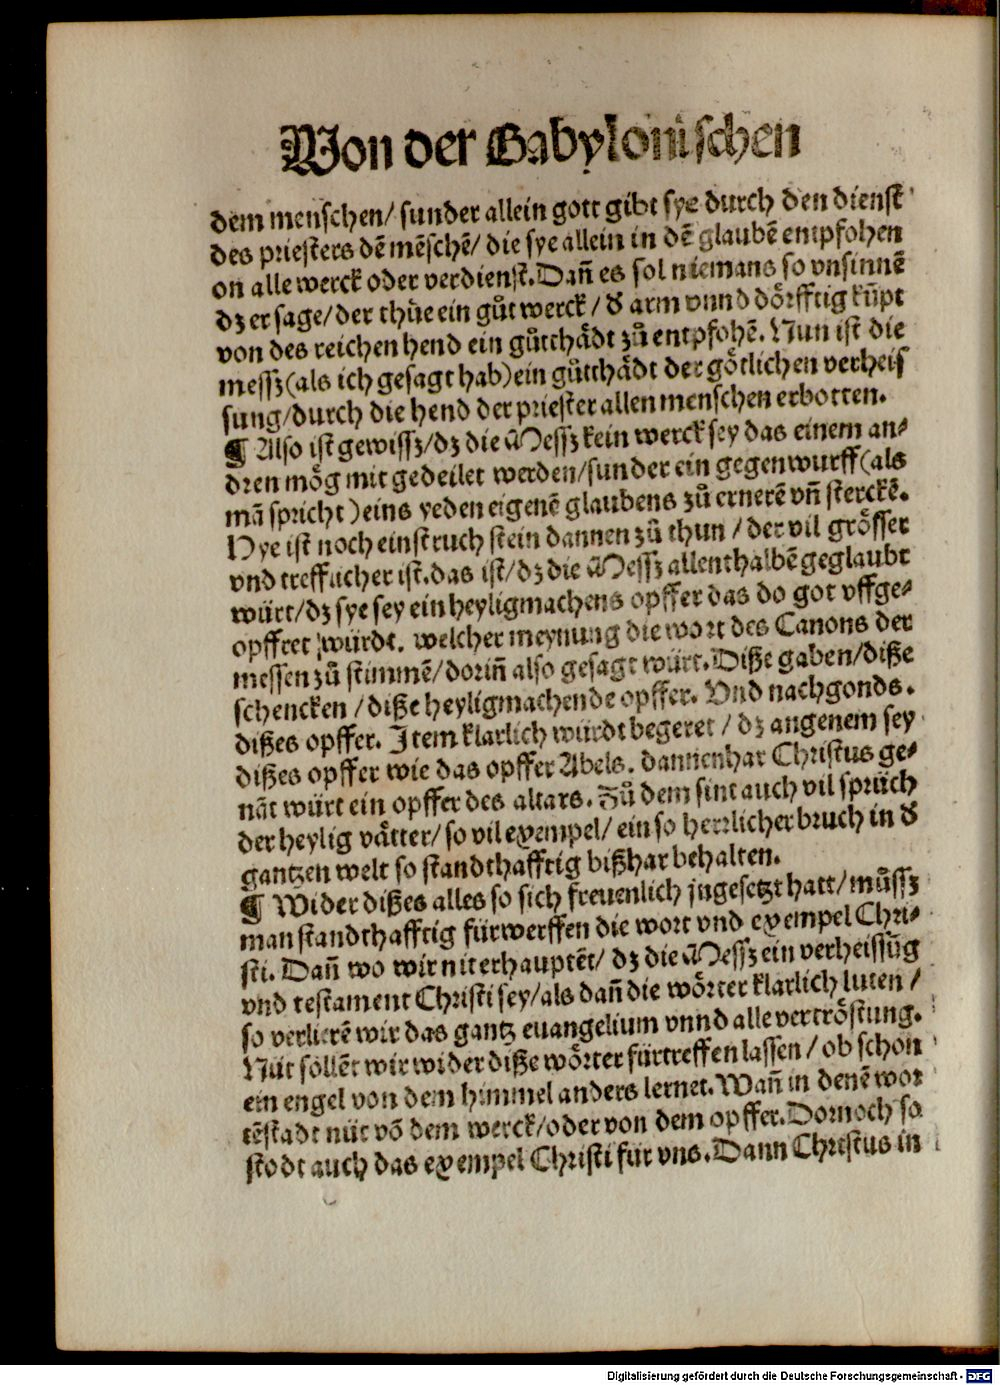 Von der Babylonischen
dem menschen/ sunder allein gott gibt sye durch den dienst
des priesters dē mēschē/ die sye allein in dē glaubē empfohen
on alle werck oder verdienst. Dañ es sol niemans so vnsinnē
dz er sage/ der thüe ein gůt werck / d' arm vnnd dörfftig kūpt
von des reichen hend ein gůtthådt zů entpfohē. Nun ist die
messz (als ich gesagt hab) ein gůtthådt der götlichen verheis
sung/ durch die hend der priester allen menschen erbotten.
¶ Also ist gewissz/ dz die Messz kein werck sey das einem an⸗
dren mög mit gedeilet werden/ sunder ein gegenwurff (als
mā spricht) eins yeden eigenē glaubens zů ernerē vñ sterckē.
Hye ist noch ein struchstein dannen zů thun / der vil grösser
vnd trefflicher ist. das ist/ dz die Messz allenthalbē geglaubt
würt/ dz sye sey ein heyligmachens opffer das do got vffge⸗
opffret würdt. welcher meynung die wort des Canons der
messen zů stimmē/ dorin̄ also gesagt würt. Diße gaben/ diße
schencken / diße heyligmachende opffer. Vnd nachgonds.
dißes opffer. Item klarlich würdt begeret / dz angenem sey
dißes opffer wie das opffer Abels. dannenhar Christus ge⸗
nāt würt ein opffer des altars. Zů dem sint auch vil sprüch
der heylig våtter/ so vil exempel/ ein so herrlicher bruch in d'
gantzen welt so standthafftig bißhar behalten.
¶ Wider dißes alles so sich freuenlich jngesetzt hatt/ můssz
man standthafftig fürwerffen die wort vnd exempel Chri⸗
sti. Dañ wo wir nit erhauptēt/ dz die Messz ein verheissūg
vnd testament Christi sey/ als dañ die wörter klarlich luten /
so verlierē wir das gantz euangelium vnnd alle vertröstung.
Nüt söllēt wir wider diße wörter fürtreffen lassen / ob schon
ein engel von dem himmel anders lernet. Wañ in denē wor
tē stadt nüt vō dem werck/ oder von dem opffer. Dornoch so
stodt auch das exempel Christi für vns. Dann Christus in
Digitalisierung gefördert durch die Deutsche Forschungsgemeinschaft - DFG